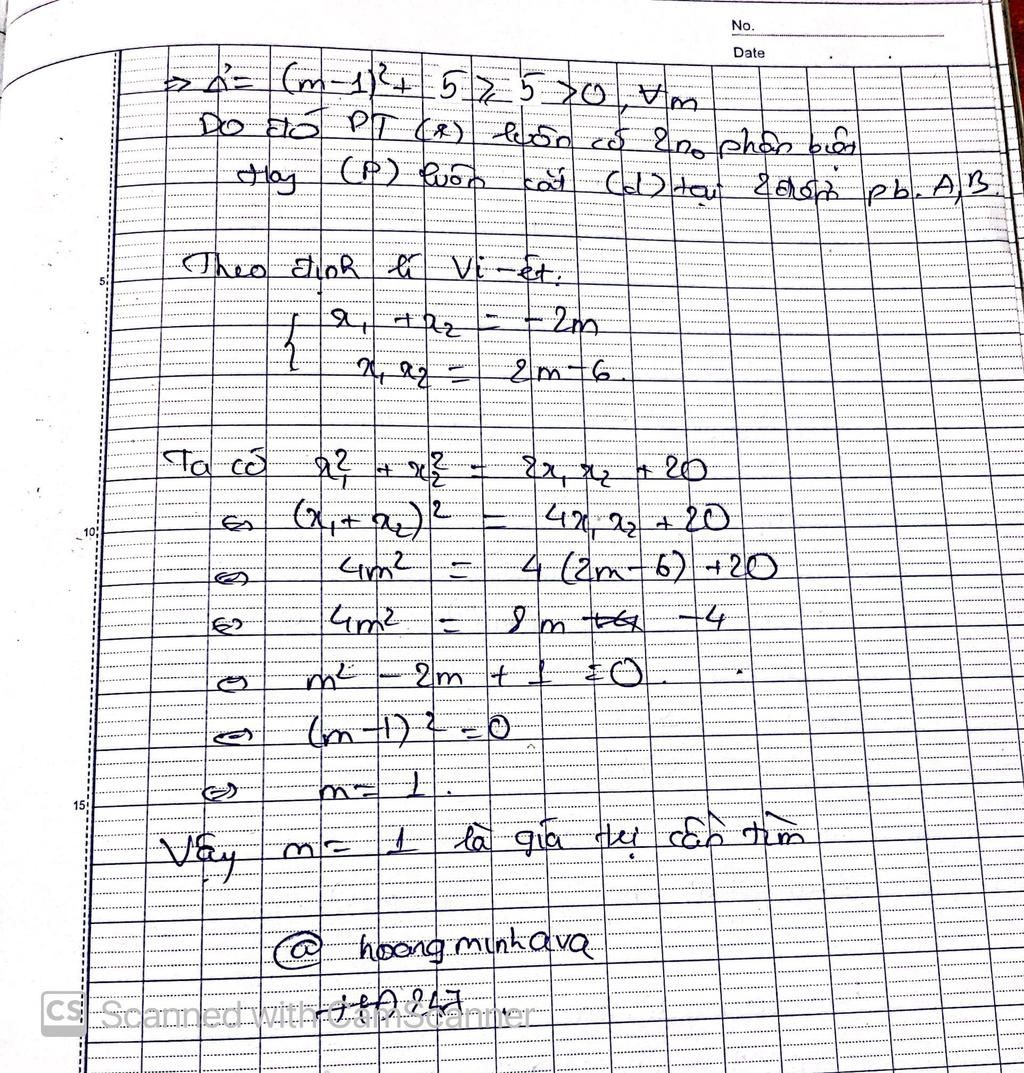 No.
Date
⇒ Δ' = (m-1)² + 5 ≥ 5 > 0, ∀m
Do đó PT (*) luôn có 2 no phân biệt
Hay (P) luôn cắt (d) tại 2 điểm pb. A, B.
5
Theo định lí Vi-ét:
{ x₁ + x₂ = -2m
x₁x₂ = 2m - 6.
Ta có x₁² + x₂² = 2x₁x₂ + 20
10
⇔ (x₁ + x₂)² = 4x₁x₂ + 20
⇔ 4m² = 4(2m - 6) + 20
⇔ 4m² = 8m - 4
⇔ m² - 2m + 1 = 0.
⇔ (m-1)² = 0
15
⇔ m = 1.
Vậy m = 1 là giá trị cần tìm
@ hoangminhava
247
CS Scanned with CamScanner